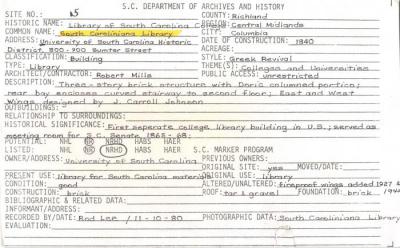 S.C. DEPARTMENT OF ARCHIVES AND HISTORY
SITE NO.: 65 COUNTY: Richland
HISTORIC NAME: Library of South Carolina College REGION: Central Midlands
COMMON NAME: South Caroliniana Library CITY: Columbia
ADDRESS: University of South Carolina Historic District, 800-900 Sumter Street DATE OF CONSTRUCTION: 1840
ACREAGE:
CLASSIFICATION: Building STYLE: Greek Revival
TYPE: Library THEME(S): Colleges and Universities
ARCHITECT/CONTRACTOR: Robert Mills PUBLIC ACCESS: unrestricted
DESCRIPTION: Three-story brick structure with Doric columned portico;
rear bay encloses curved stairway to second floor; East and West
wings designed by J. Carroll Johnson
OUTBUILDINGS: -
RELATIONSHIP TO SURROUNDINGS:
HISTORICAL SIGNIFICANCE: First seperate college library building in U.S.; served as
meeting room for S.C. Senate 1865-68;
POTENTIAL: NHL NR NRHD HABS HAER S.C. MARKER PROGRAM
LISTED: NHL NR NRHD HABS HAER PREVIOUS OWNERS:
OWNER/ADDRESS: University of South Carolina ORIGINAL SITE: yes MOVED/DATE:
PRESENT USE: library for South Carolina materials ORIGINAL USE: library
CONDITION: good ALTERED/UNALTERED: fireproof wings added 1927 &
CONSTRUCTION: brick ROOF: tar & gravel FOUNDATION: brick
BIBLIOGRAPHIC & RELATED DATA:
INFORMANT/ADDRESS:
RECORDED BY/DATE: Rod Lee / 11-10-80 PHOTOGRAPHIC DATA: South Caroliniana Library
EVALUATION: